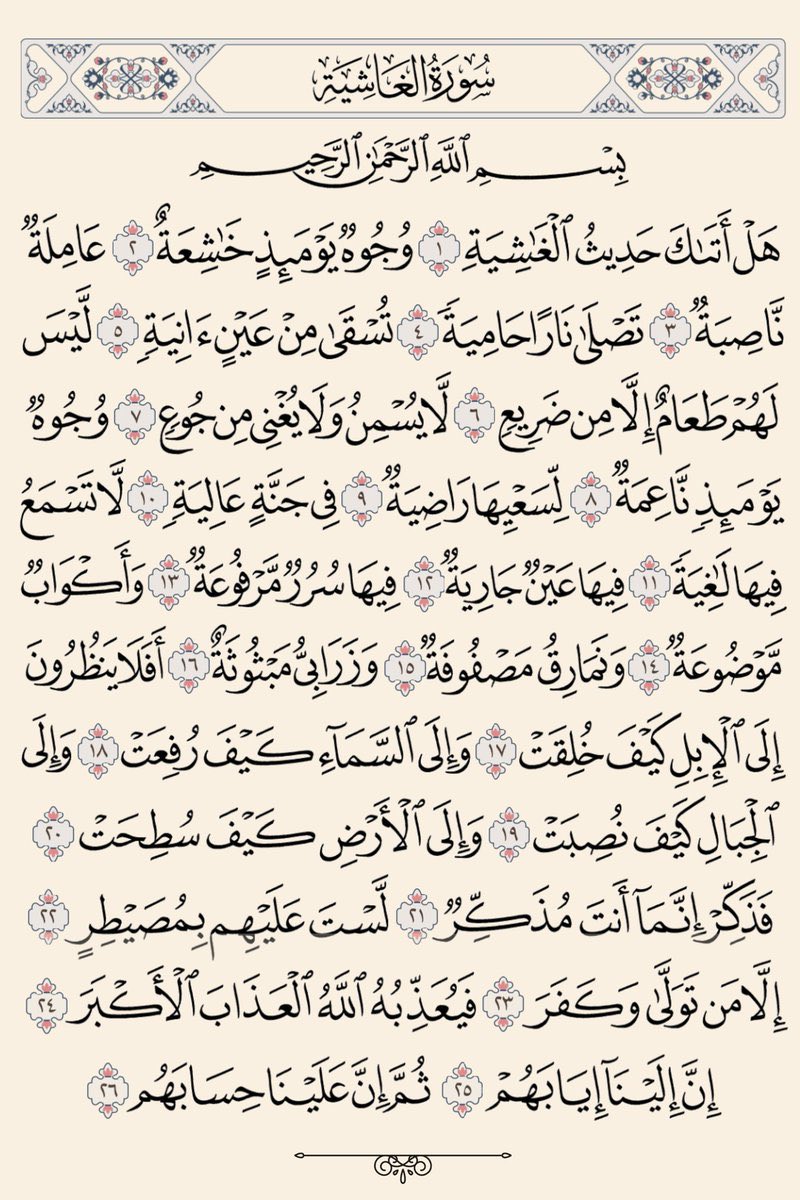 سُورَةُ الغَاشِيَةِ
بِسْمِ ٱللَّهِ ٱلرَّحْمَٰنِ ٱلرَّحِيمِ
هَلْ أَتَىٰكَ حَدِيثُ ٱلْغَٰشِيَةِ ١ وُجُوهٌ يَوْمَئِذٍ خَٰشِعَةٌ ٢ عَامِلَةٌ
نَّاصِبَةٌ ٣ تَصْلَىٰ نَارًا حَامِيَةً ٤ تُسْقَىٰ مِنْ عَيْنٍ ءَانِيَةٍ ٥ لَّيْسَ
لَهُمْ طَعَامٌ إِلَّا مِن ضَرِيعٍ ٦ لَّا يُسْمِنُ وَلَا يُغْنِى مِن جُوعٍ ٧ وُجُوهٌ
يَوْمَئِذٍ نَّاعِمَةٌ ٨ لِّسَعْيِهَا رَاضِيَةٌ ٩ فِى جَنَّةٍ عَالِيَةٍ ١٠ لَّا تَسْمَعُ
فِيهَا لَٰغِيَةً ١١ فِيهَا عَيْنٌ جَارِيَةٌ ١٢ فِيهَا سُرُرٌ مَّرْفُوعَةٌ ١٣ وَأَكْوَابٌ
مَّوْضُوعَةٌ ١٤ وَنَمَارِقُ مَصْفُوفَةٌ ١٥ وَزَرَابِىُّ مَبْثُوثَةٌ ١٦ أَفَلَا يَنظُرُونَ
إِلَى ٱلْإِبِلِ كَيْفَ خُلِقَتْ ١٧ وَإِلَى ٱلسَّمَآءِ كَيْفَ رُفِعَتْ ١٨ وَإِلَى
ٱلْجِبَالِ كَيْفَ نُصِبَتْ ١٩ وَإِلَى ٱلْأَرْضِ كَيْفَ سُطِحَتْ ٢٠
فَذَكِّرْ إِنَّمَآ أَنتَ مُذَكِّرٌ ٢١ لَّسْتَ عَلَيْهِم بِمُصَيْطِرٍ ٢٢
إِلَّا مَن تَوَلَّىٰ وَكَفَرَ ٢٣ فَيُعَذِّبُهُ ٱللَّهُ ٱلْعَذَابَ ٱلْأَكْبَرَ ٢٤
إِنَّ إِلَيْنَآ إِيَابَهُمْ ٢٥ ثُمَّ إِنَّ عَلَيْنَا حِسَابَهُم ٢٦